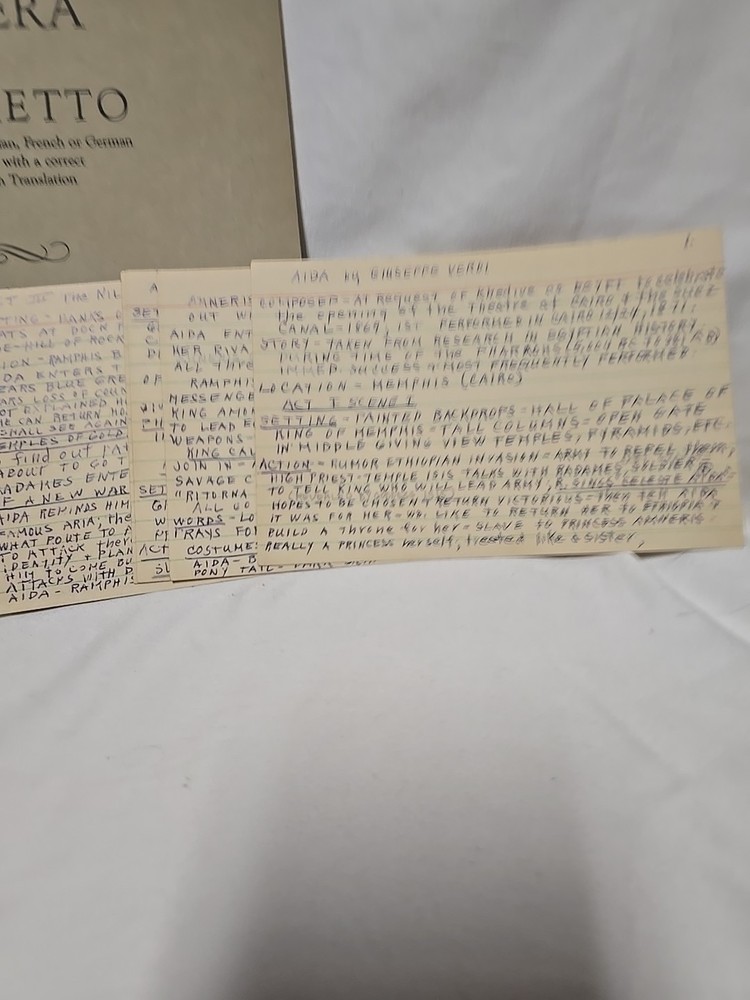 ERA
ETTO
an, French or German
with a correct
h Translation
1.
AIDA by GIUSEPPE VERDI
COMPOSED = AT REQUEST OF KHEDIVE OF EGYPT TO CELEBRATE
the opening of the THEATRE AT CAIRO & THE SUEZ
CANAL = 1869, 1ST PERFORMED IN CAIRO 12/24, 1871.
STORY = TAKEN FROM RESEARCH IN EGYPTIAN HISTORY
DURING TIME OF THE PHARAOHS
IMMED. SUCCESS & MOST FREQUENTLY PERFORMED.
LOCATION = MEMPHIS (CAIRO)
ACT I SCENE I
SETTING = PAINTED BACKDROPS = HALL OF PALACE OF
KING OF MEMPHIS = TALL COLUMNS = OPEN GATE
IN MIDDLE GIVING VIEW TEMPLES, PIRAMIDS, ETC.
ACTION = RUMOR ETHIOPIAN INVASION = ARMY TO REPEL them,
HIGH PRIEST = TEMPLE ISIS TALKS WITH RADAMES, SOLDIER
TO TELL KING WHO WILL LEAD ARMY, R. SINGS CELESTE AIDA
HOPES TO BE CHOSEN & RETURN VICTORIOUS = THEN TELL AIDA
IT WAS FOR HER = WD. LIKE TO RETURN HER TO ETHIOPIA &
BUILD A Throne for her = SLAVE TO PRINCESS AMNERIS
REALLY A PRINCESS herself, treated like a sister,
AMNERIS
OUT W
AIDA ENT
HER RIVA
ALL THRO
RAMPHIS
MESSENGE
KING AMON
TO LEAD E
WEAPONS =
KING CAL
JOIN IN =
SAVAGE C
"RITORNA
ALL GO
WORDS = LO
PRAYS FOR
COSTUME
AIDA = B
PONY TAIL =
A
SET
OF
SET
ACT
ACT III THE NIL
TING = BANKS O
ATS AT DOCK
E = HILL OF ROCK
ION = RAMPHIS B
IDA ENTERS T
EARS BLUE GRE
EARS LOSS OF COUN
NOT EXPLAINED H
HE CAN RETURN HO
SHALL SEE AGAIN
TEMPLES OF GOLD
find out
ABOUT TO GO T
RADAMES ENTE
OF A NEW WAR
AIDA REMINDS HIM
FAMOUS ARIA, the
WHAT ROUTE TO
TO ATTACK their
IDENTITY & PLAN
HIM TO COME BU
ATTACKS WITH D
AIDA = RAMPHIS